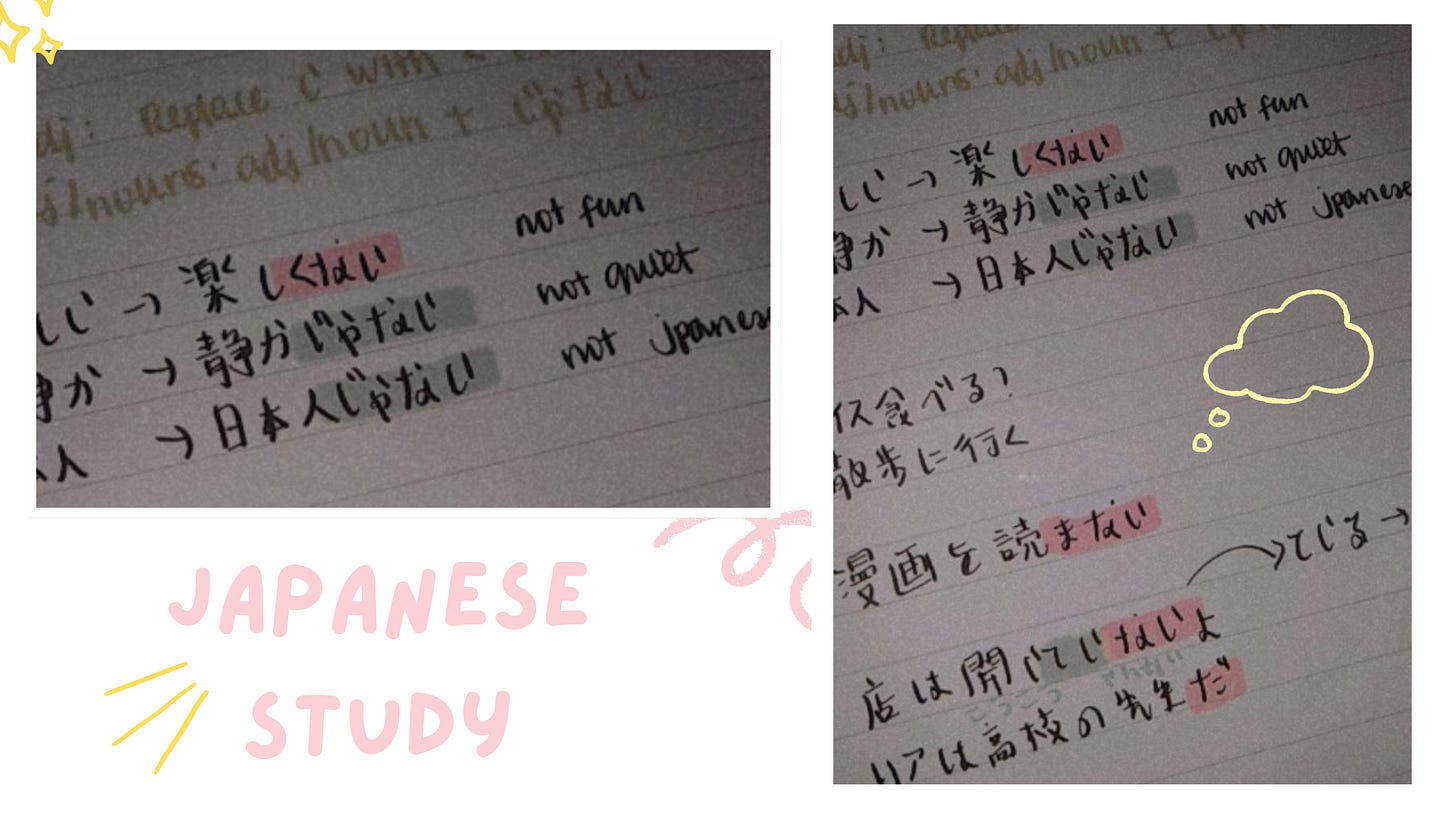 dj: Replace い with く
adj/nouns: adj/noun + じゃない
しい → 楽しくない not fun
静か → 静かじゃない not quiet
人 → 日本人じゃない not jpanese
JAPANESE
STUDY
dj: Replace
adj/nouns: adj/noun +
しい → 楽しくない not fun
静か → 静かじゃない not quiet
本人 → 日本人じゃない not jpanese
イス食べる?
散歩に行く
漫画を読まない
ている →
店は開いていないよ
リアは高校の先生だ